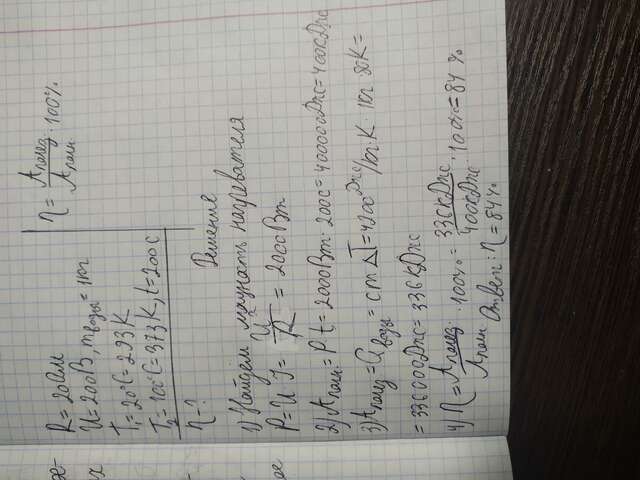 R = 20 Ом
U = 200В, mводы = 1кг
T₁ = 20°C = 293K
T₂ = 100°C = 373K, t = 200c
η - ?
η = Aполез. / Aполн · 100%
Решение
1) Найдём мощность нагревателя
P = U I = U² / R = 2000 Вт
2) Aполн. = P t = 2000Вт · 200c = 400000Дж = 400кДж
3) Aполез = Qводы = cm ΔT = 4200 Дж/кг·K · 1кг · 80K =
= 336000Дж = 336 кДж
4) η = Aполез. / Aполн · 100% = 336кДж / 400кДж · 100% = 84 %
Ответ: η = 84%